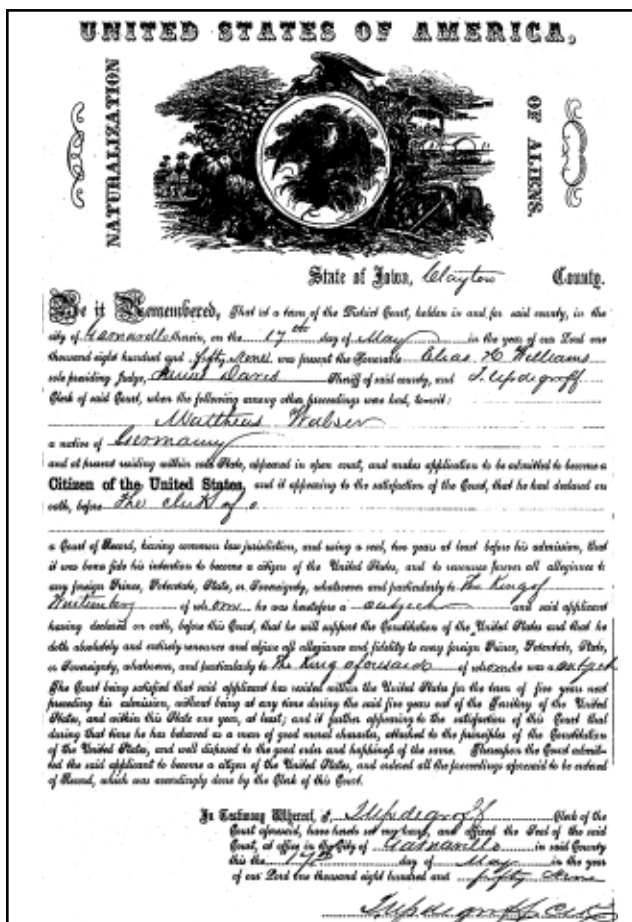 UNITED STATES OF AMERICA,
NATURALIZATION
OF ALIENS.
State of Iowa, Clayton County.
Be it Remembered, That at a term of the District Court, holden in and for said county, in the
city of Garnavillo therein, on the 17th day of May in the year of our Lord one
thousand eight hundred and fifty Nine was present the Honorable Elias H. Williams
sole presiding Judge, Davis Sheriff of said county, and T. Updegraff
Clerk of said Court, when the following among other proceedings was had, to-wit:
Matthew Walser
a native of Germany
and at present residing within said State, appeared in open court, and makes application to be admitted to become a
Citizen of the United States, and it appearing to the satisfaction of the Court, that he had declared on
oath, before The clerk of
a Court of Record, having common law jurisdiction, and using a seal, two years at least before his admission, that
it was bona fide his intention to become a citizen of the United States, and to renounce forever all allegiance to
any foreign Prince, Potentate, State, or Sovereignty, whatsoever and particularly to The King of
of whom he was heretofore a subject and said applicant
having declared on oath, before this Court, that he will support the Constitution of the United States and that he
doth absolutely and entirely renounce and abjure all allegiance and fidelity to every foreign Prince, Potentate, State,
or Sovereignty, whatever, and particularly to The King aforesaid of whom he was a subject
The Court being satisfied that said applicant has resided within the United States for the term of five years next
preceding his admission, without being at any time during the said five years out of the Territory of the United
States, and within this State one year, at least; and it further appearing to the satisfaction of this Court that
during that time he has behaved as a man of good moral character, attached to the principles of the Constitution
of the United States, and well disposed to the good order and happiness of the same. Thereupon the Court admit-
ted the said applicant to become a citizen of the United States, and ordered all the proceedings aforesaid to be ordered
of Record, which was accordingly done by the Clerk of this Court.
In Testimony Whereof, I, T Updegraff Clerk of the
Court aforesaid, have hereto set my hand, and affixed the Seal of the said
Court, at office in the City of Garnavillo in said County
this the 17th day of May in the year
of our Lord one thousand eight hundred and fifty Nine
T Updegraff Clk